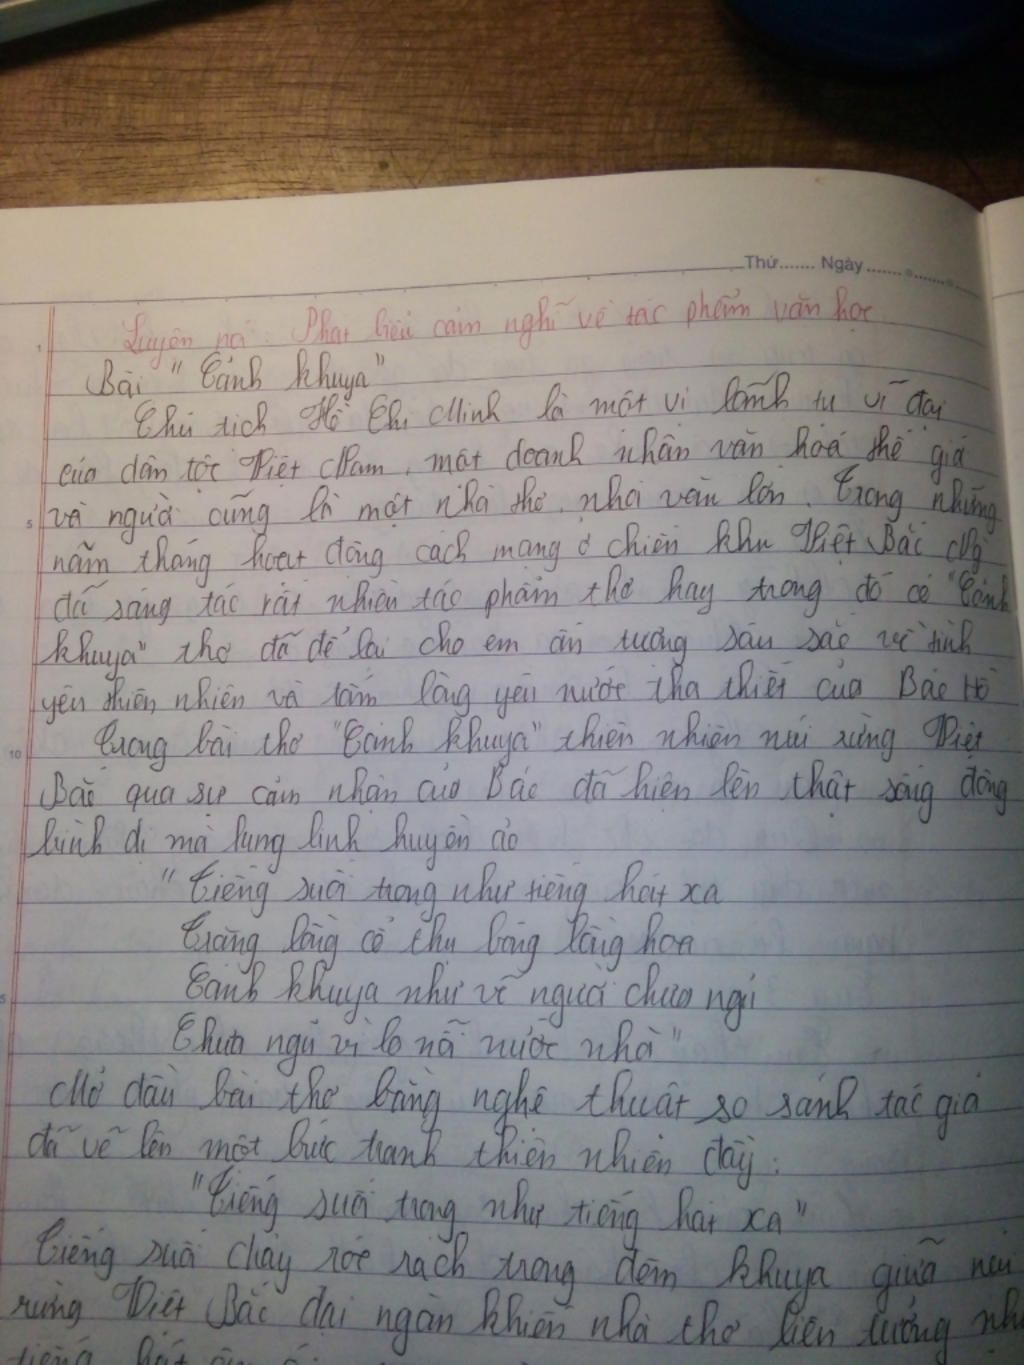 Thứ....... Ngày..............
Luyện nói : Phát biểu cảm nghĩ về tác phẩm văn học
Bài " Cảnh khuya"
Chủ tịch Hồ Chí Minh là một vị lãnh tụ vĩ đại
của dân tộc Việt Nam, một doanh nhân văn hoá thế giới
và người cũng là một nhà thơ, nhà văn lớn. Trong những
năm tháng hoạt động cách mạng ở chiến khu Việt Bắc Ng
đã sáng tác rất nhiều tác phẩm thơ hay trong đó có "Cảnh
khuya" thơ đã để lại cho em ấn tượng sâu sắc về tình
yêu thiên nhiên và tấm lòng yêu nước tha thiết của Bác Hồ
Trong bài thơ "Cảnh khuya" thiên nhiên núi rừng Việt
Bắc qua sự cảm nhận của Bác đã hiện lên thật sống động
bình dị mà lung linh huyền ảo
" Tiếng suối trong như tiếng hát xa
Trăng lồng cổ thụ bóng lồng hoa
Cảnh khuya như vẽ người chưa ngủ
Chưa ngủ vì lo nỗi nước nhà"
Mở đầu bài thơ bằng nghệ thuật so sánh tác giả
đã vẽ lên một bức tranh thiên nhiên đầy :
"Tiếng suối trong như tiếng hát xa"
Tiếng suối chảy róc rách trong đêm khuya giữa núi
rừng Việt Bắc đại ngàn khiến nhà thơ liên tưởng như
tiếng hát
5
10